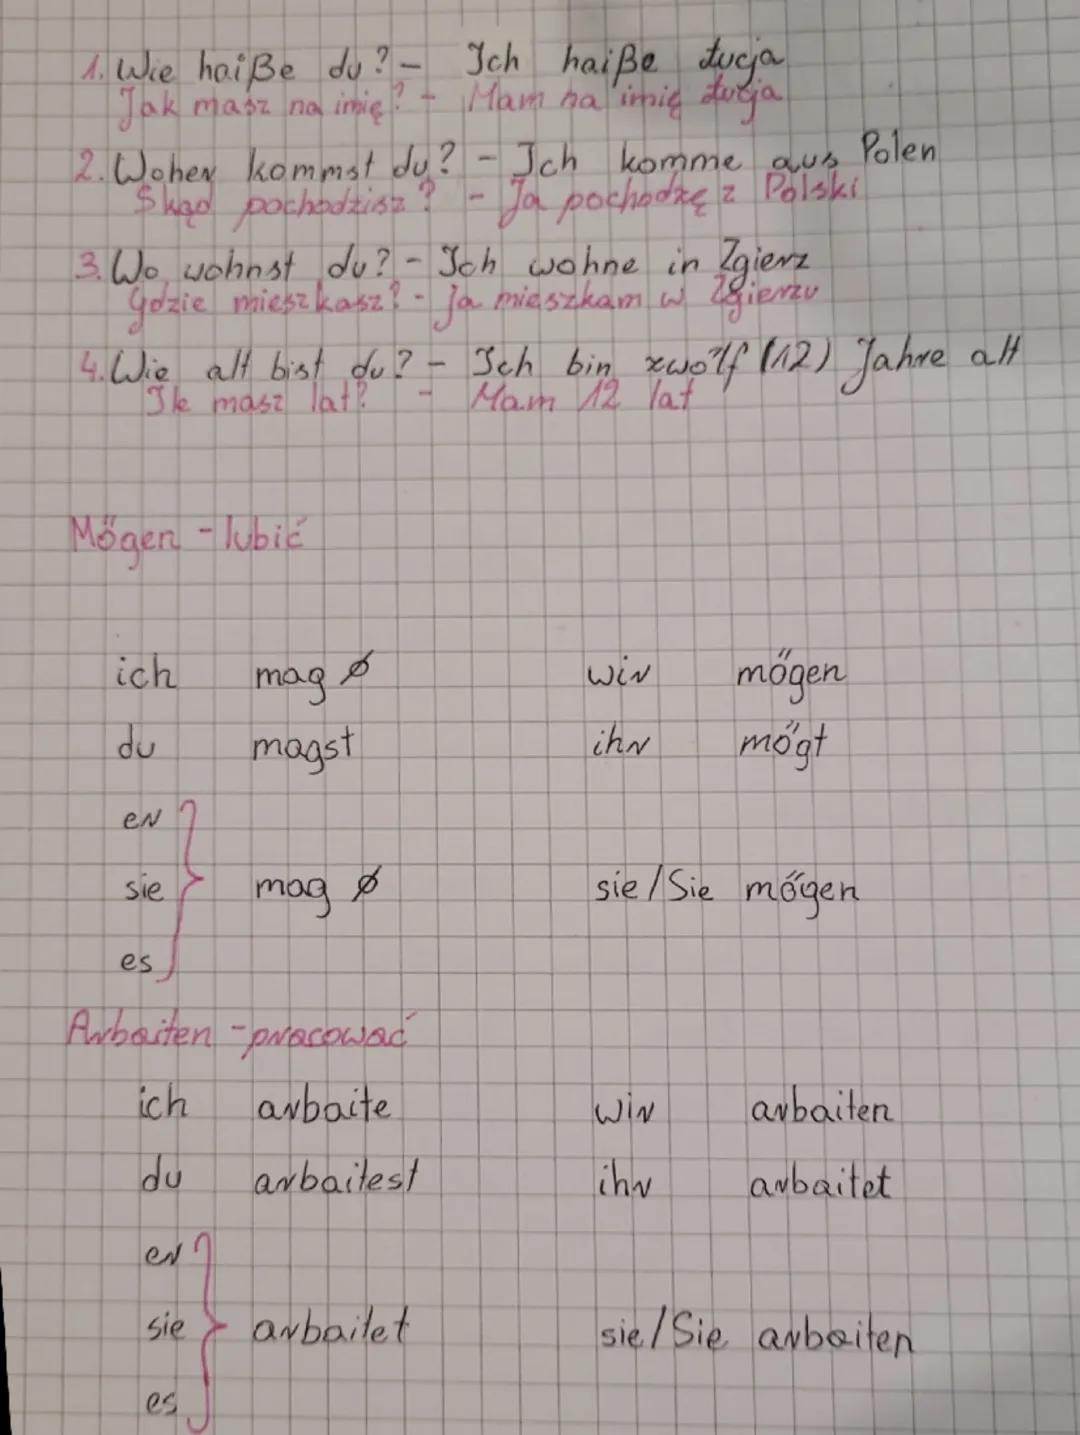 1. Wie haiße du? - Ich haiße Łucja
Jak masz na imię? - Mam na imię Łucja
2. Woher kommst du? - Ich komme aus Polen
Skąd pochodzisz? - Ja pochodzę z Polski
3. Wo wohnst du? - Ich wohne in Zgierz
Gdzie mieszkasz? - Ja mieszkam w Zgierzu
4. Wie alt bist du? - Ich bin zwölf (12) Jahre alt
Ile masz lat? - Mam 12 lat
Mögen - lubić
ich mag ø wir mögen
du magst ihr mögt
er
sie mag ø sie/Sie mögen
es
Arbaiten - pracować
ich arbaite wir arbaiten
du arbaitest ihr arbaitet
er
sie arbaitet sie/Sie arbaiten
es